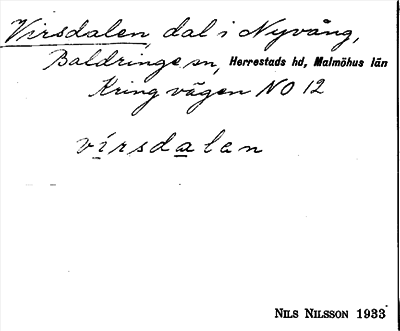 Virsdalen, dal i Nyvång,
Baldringe sn, Herrestads hd, Malmöhus län
Kring vägen NO 12
vírsdalen
NILS NILSSON 1933